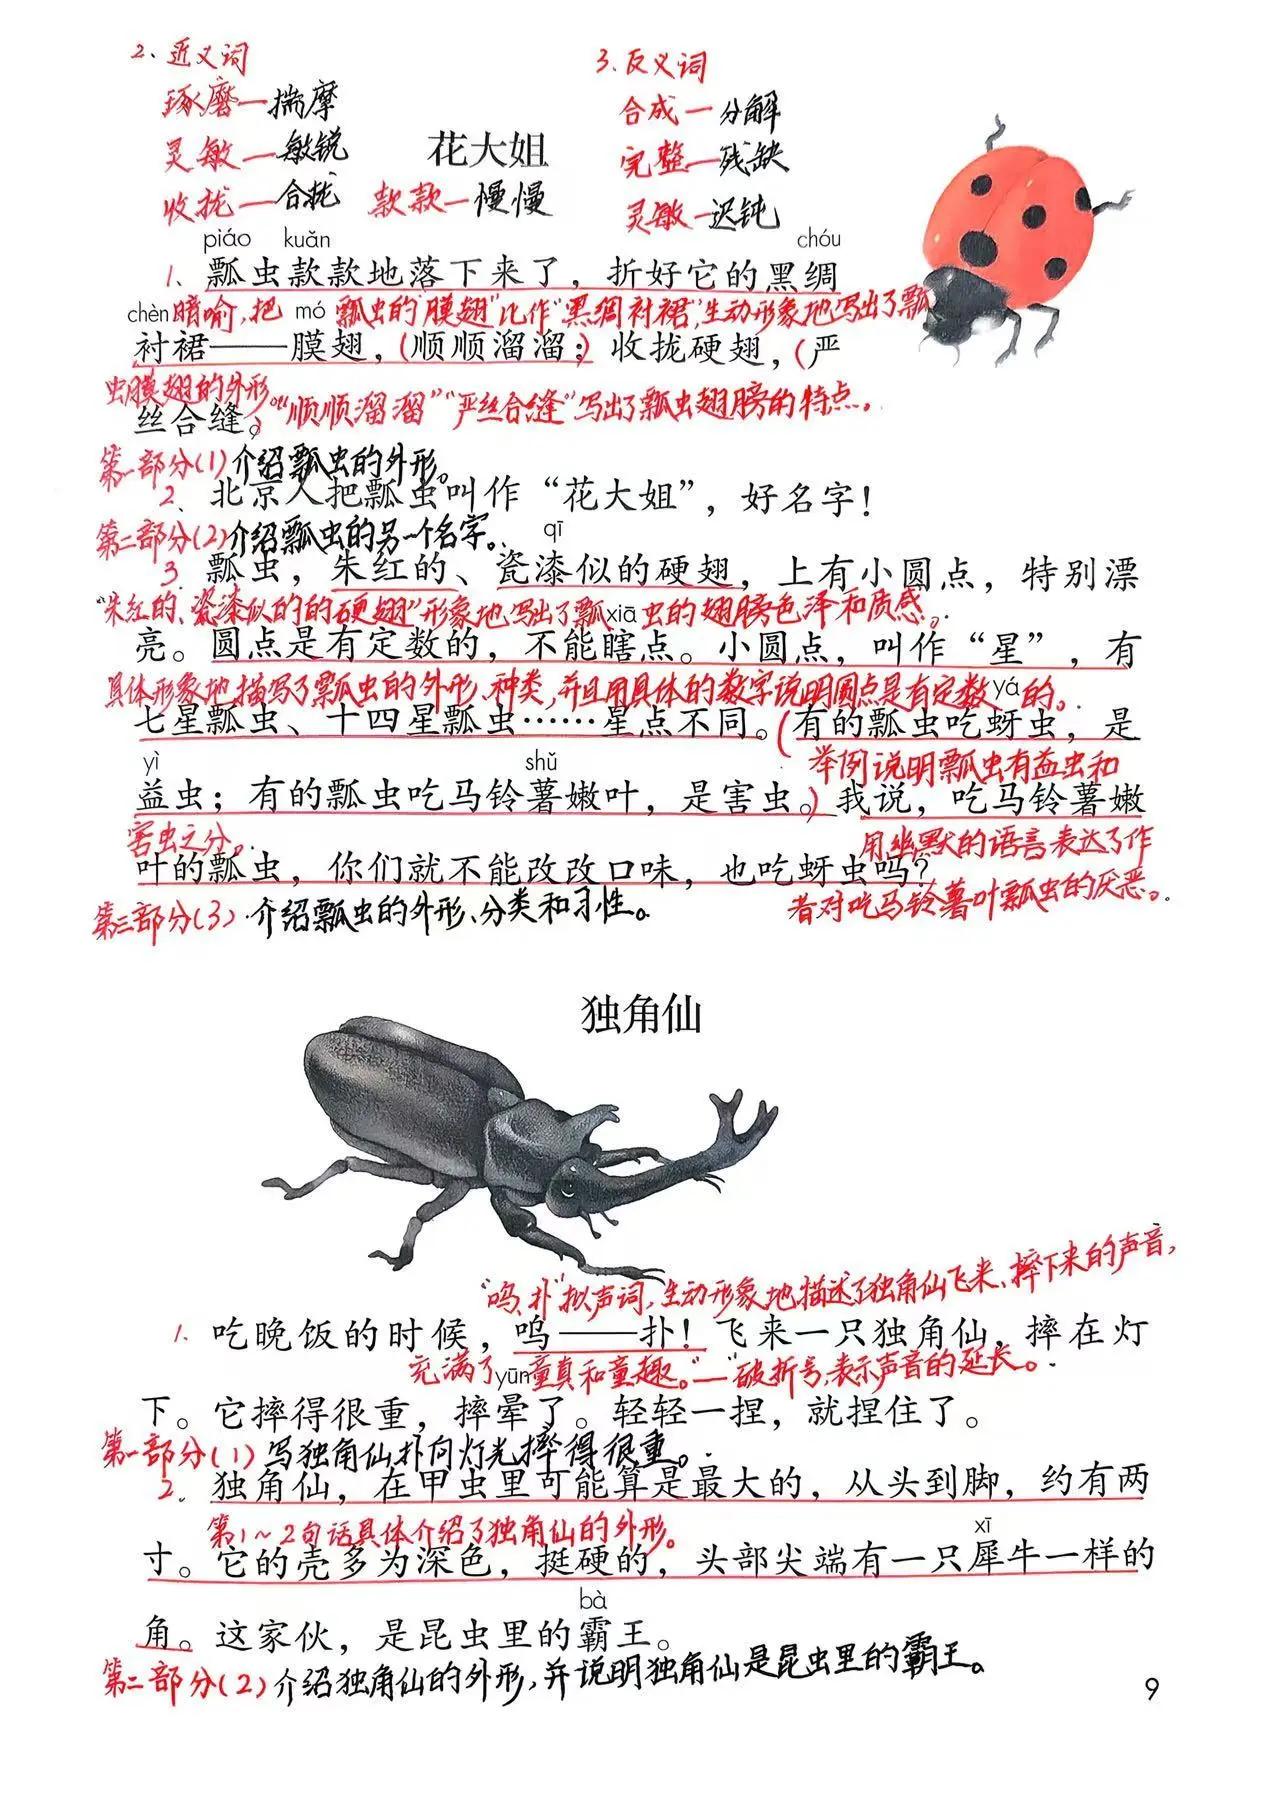 2、近义词
3.反义词
琢磨—揣摩
合成—分解
灵敏—敏锐
花大姐
完整—残缺
收拢—合拢 款款—慢慢
灵敏—迟钝
piáo kuǎn chóu
1. 瓢虫款款地落下来了，折好它的黑绸
chèn 暗喻,把 mó 瓢虫的"膜翅"比作"黑绸衬裙",生动形象地写出了瓢
衬裙——膜翅，(顺顺溜溜；)收拢硬翅，(严
虫膜翅的外形。"顺顺溜溜""严丝合缝"写出了瓢虫翅膀的特点。
丝合缝。)
第一部分(1)介绍瓢虫的外形。
2. 北京人把瓢虫叫作“花大姐”，好名字！
第二部分(2)介绍瓢虫的另一个名字。
qī
3. 瓢虫，朱红的、瓷漆似的硬翅，上有小圆点，特别漂
"朱红的、瓷漆似的的硬翅"形象地写出了瓢 xiā 虫的翅膀色泽和质感。
亮。圆点是有定数的，不能瞎点。小圆点，叫作“星”，有
具体形象地描写了瓢虫的外形、种类,并且用具体的数字说明圆点是有定数 yá 的。
七星瓢虫、十四星瓢虫……星点不同。(有的瓢虫吃蚜虫，是
yì shǔ
举例说明瓢虫有益虫和
益虫；有的瓢虫吃马铃薯嫩叶，是害虫。)我说，吃马铃薯嫩
害虫之分。
用幽默的语言表达了作
叶的瓢虫，你们就不能改改口味，也吃蚜虫吗？
者对吃马铃薯叶瓢虫的厌恶。
第三部分(3)介绍瓢虫的外形、分类和习性。
独角仙
"呜、扑"拟声词,生动形象地描述了独角仙飞来、摔下来的声音,
1. 吃晚饭的时候，呜——扑！飞来一只独角仙，摔在灯
充满了 yūn 童真和童趣。"—"破折号,表示声音的延长。
下。它摔得很重，摔晕了。轻轻一捏，就捏住了。
第一部分(1)写独角仙扑向灯光摔得很重。
2. 独角仙，在甲虫里可能算是最大的，从头到脚，约有两
第1~2句话具体介绍了独角仙的外形。
xī
寸。它的壳多为深色，挺硬的，头部尖端有一只犀牛一样的
bà
角。这家伙，是昆虫里的霸王。
第二部分(2)介绍独角仙的外形,并说明独角仙是昆虫里的霸王。
9